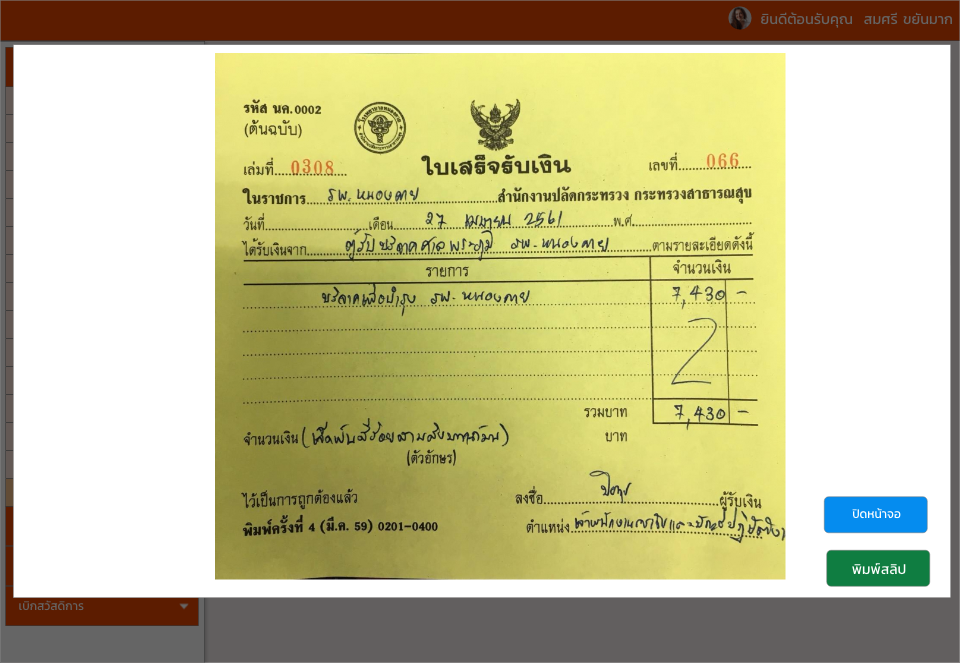 ยินดีต้อนรับคุณ สมศรี ขยันมาก
รหัส นค.0002
(ต้นฉบับ)
เล่มที่ 0308
ใบเสร็จรับเงิน
เลขที่ 066
ในราชการ รพ.หนองคาย สำนักงานปลัดกระทรวง กระทรวงสาธารณสุข
วันที่ เดือน 27 เมษายน 2561 พ.ศ.
ได้รับเงินจาก ตู้รับบริจาคศาลพระภูมิ รพ.หนองคาย ตามรายละเอียดดังนี้
รายการ จำนวนเงิน
บริจาคเพื่อบำรุง รพ.หนองคาย 7,430 –
รวมบาท 7,430 –
จำนวนเงิน (เจ็ดพันสี่ร้อยสามสิบบาทถ้วน) บาท
(ตัวอักษร)
ไว้เป็นการถูกต้องแล้ว
ลงชื่อ ผู้รับเงิน
พิมพ์ครั้งที่ 4 (มี.ค. 59) 0201-0400
ตำแหน่ง เจ้าพนักงานการเงินและบัญชีปฏิบัติงาน
ปิดหน้าจอ
พิมพ์สลิป
เบิกสวัสดิการ